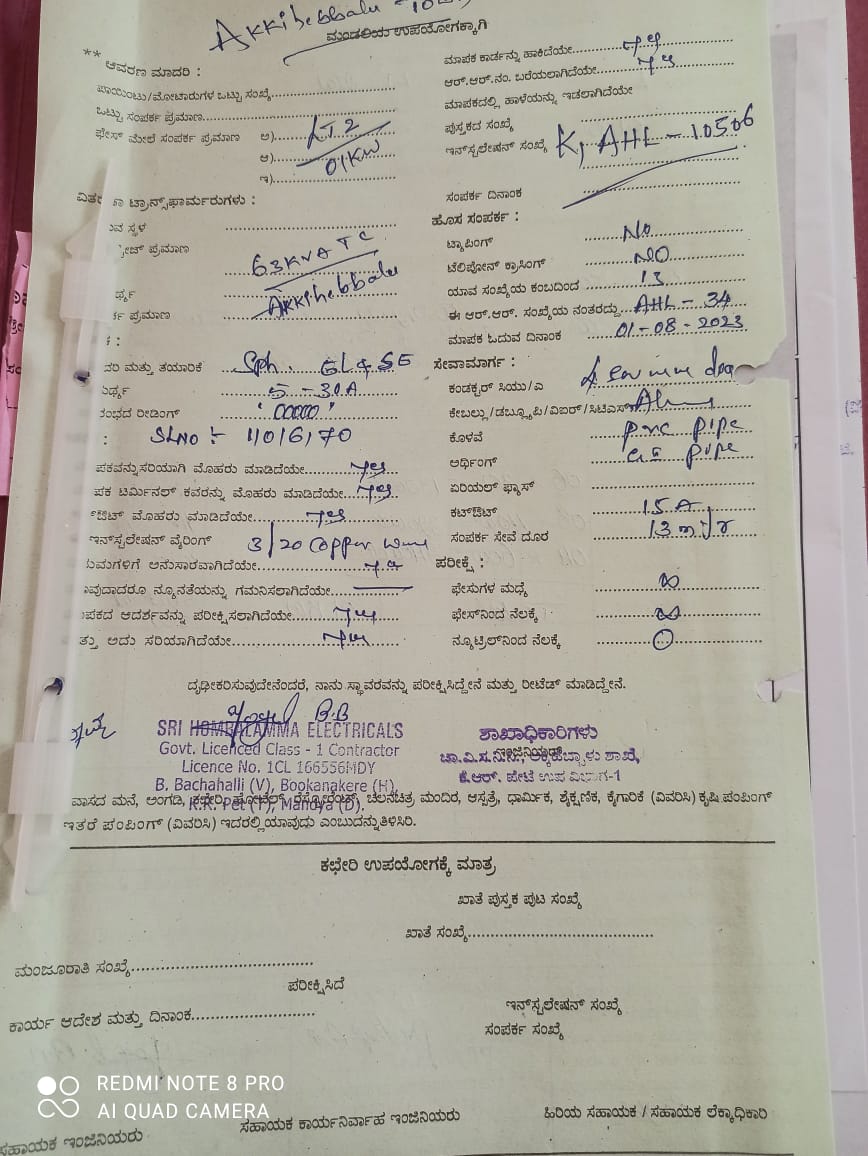 Akkihebbalu
ಮಂಡಳಿಯ ಉಪಯೋಗಕ್ಕಾಗಿ
** ಆವರಣ ಮಾದರಿ :
ಪಾಯಿಂಟು/ಮೋಟಾರುಗಳ ಒಟ್ಟು ಸಂಖ್ಯೆ
ಒಟ್ಟು ಸಂಪರ್ಕ ಪ್ರಮಾಣ
ಫೇಸ್ ಮೇಲೆ ಸಂಪರ್ಕ ಪ್ರಮಾಣ ಅ) LT 2
ಆ) 01KW
ಇ)
ಟ್ರಾನ್ಸ್‌ಫಾರ್ಮರುಗಳು :
ಸ್ಥಳ
ಪ್ರಮಾಣ 63KVA TC
Akkihebbalu
ಪ್ರಮಾಣ
ಮತ್ತು ತಯಾರಿಕೆ Sph. GL & SE
5-30A
ರೀಡಿಂಗ್ '00000'
: SLNO :- 11016170
ಪಕವನ್ನು ಸರಿಯಾಗಿ ಮೊಹರು ಮಾಡಿದೆಯೇ yes
ಪಕ ಟರ್ಮಿನಲ್ ಕವರನ್ನು ಮೊಹರು ಮಾಡಿದೆಯೇ yes
ಔಟ್ ಮೊಹರು ಮಾಡಿದೆಯೇ yes
ಇನ್‌ಸ್ಟಲೇಷನ್ ವೈರಿಂಗ್ 3/20 Copper wire
ಅನುಸಾರವಾಗಿದೆಯೇ yes
ವುದಾದರೂ ನ್ಯೂನತೆಯನ್ನು ಗಮನಿಸಲಾಗಿದೆಯೇ
ಪಕದ ಆದರ್ಶವನ್ನು ಪರೀಕ್ಷಿಸಲಾಗಿದೆಯೇ yes
ತ್ತು ಅದು ಸರಿಯಾಗಿದೆಯೇ yes
ಮಾಪಕ ಕಾರ್ಡನ್ನು ಹಾಕಿದೆಯೇ yes
ಆರ್.ಆರ್.ನಂ. ಬರೆಯಲಾಗಿದೆಯೇ yes
ಮಾಪಕದಲ್ಲಿ ಹಾಳೆಯನ್ನು ಇಡಲಾಗಿದೆಯೇ
ಪುಸ್ತಕದ ಸಂಖ್ಯೆ
ಇನ್‌ಸ್ಟಲೇಷನ್ ಸಂಖ್ಯೆ AHL - 10506
ಸಂಪರ್ಕ ದಿನಾಂಕ
ಹೊಸ ಸಂಪರ್ಕ :
ಟ್ಯಾಪಿಂಗ್ No
ಟೆಲಿಪೋನ್ ಕ್ರಾಸಿಂಗ್ NO
ಯಾವ ಸಂಖ್ಯೆಯ ಕಂಬದಿಂದ 13
ಈ ಆರ್.ಆರ್. ಸಂಖ್ಯೆಯ ನಂತರದ್ದು AHL - 34
ಮಾಪಕ ಓದುವ ದಿನಾಂಕ 01-08-2023
ಸೇವಾಮಾರ್ಗ :
ಕಂಡಕ್ಟರ್ ಸಿಯು/ಎ
ಕೇಬಲ್ಲು/ಡಬ್ಲ್ಯೂಪಿ/ವಿಐಆರ್/ಸಿಟಿಎಸ್
ಕೊಳವೆ pvc pipe
ಅರ್ಥಿಂಗ್ GI pipe
ಏರಿಯಲ್ ಫ್ಯಾಸ್
ಕಟ್‌ಔಟ್ 15 A
ಸಂಪರ್ಕ ಸೇವೆ ದೂರ 13 mtr
ಪರೀಕ್ಷೆ :
ಫೇಸುಗಳ ಮಧ್ಯೆ ∞
ಫೇಸ್‌ನಿಂದ ನೆಲಕ್ಕೆ ∞
ನ್ಯೂಟ್ರಲ್‌ನಿಂದ ನೆಲಕ್ಕೆ 0
ದೃಢೀಕರಿಸುವುದೇನೆಂದರೆ, ನಾನು ಸ್ಥಾವರವನ್ನು ಪರೀಕ್ಷಿಸಿದ್ದೇನೆ ಮತ್ತು ರೀಟೆಡ್ ಮಾಡಿದ್ದೇನೆ.
SRI HOMBALAMMA ELECTRICALS
Govt. Licenced Class - 1 Contractor
Licence No. 1CL 166556MDY
B. Bachahalli (V), Bookanakere (H),
K.R. Pet (T), Mandya (D).
ಶಾಖಾಧಿಕಾರಿಗಳು
ಚಾ.ವಿ.ಸ.ನಿ.ನಿ., ಅಕ್ಕಿಹೆಬ್ಬಾಳು ಶಾಖೆ,
ಕೆ.ಆರ್. ಪೇಟೆ ಉಪ ವಿಭಾಗ-1
ವಾಸದ ಮನೆ, ಅಂಗಡಿ, ಕಛೇರಿ, ಹೋಟೆಲ್, ರೆಸ್ಟೋರೆಂಟ್, ಚಲನಚಿತ್ರ ಮಂದಿರ, ಆಸ್ಪತ್ರೆ, ಧಾರ್ಮಿಕ, ಶೈಕ್ಷಣಿಕ, ಕೈಗಾರಿಕೆ (ವಿವರಿಸಿ) ಕೃಷಿ ಪಂಪಿಂಗ್
ಇತರೆ ಪಂಪಿಂಗ್ (ವಿವರಿಸಿ) ಇದರಲ್ಲಿ ಯಾವುದು ಎಂಬುದನ್ನು ತಿಳಿಸಿರಿ.
ಕಛೇರಿ ಉಪಯೋಗಕ್ಕೆ ಮಾತ್ರ
ಖಾತೆ ಪುಸ್ತಕ ಪುಟ ಸಂಖ್ಯೆ
ಖಾತೆ ಸಂಖ್ಯೆ
ಮಂಜೂರಾತಿ ಸಂಖ್ಯೆ
ಪರೀಕ್ಷಿಸಿದೆ
ಇನ್‌ಸ್ಟಲೇಷನ್ ಸಂಖ್ಯೆ
ಕಾರ್ಯ ಆದೇಶ ಮತ್ತು ದಿನಾಂಕ
ಸಂಪರ್ಕ ಸಂಖ್ಯೆ
REDMI NOTE 8 PRO
AI QUAD CAMERA
ಸಹಾಯಕ ಇಂಜಿನಿಯರು
ಸಹಾಯಕ ಕಾರ್ಯನಿರ್ವಾಹ ಇಂಜಿನಿಯರು
ಹಿರಿಯ ಸಹಾಯಕ / ಸಹಾಯಕ ಲೆಕ್ಕಾಧಿಕಾರಿ